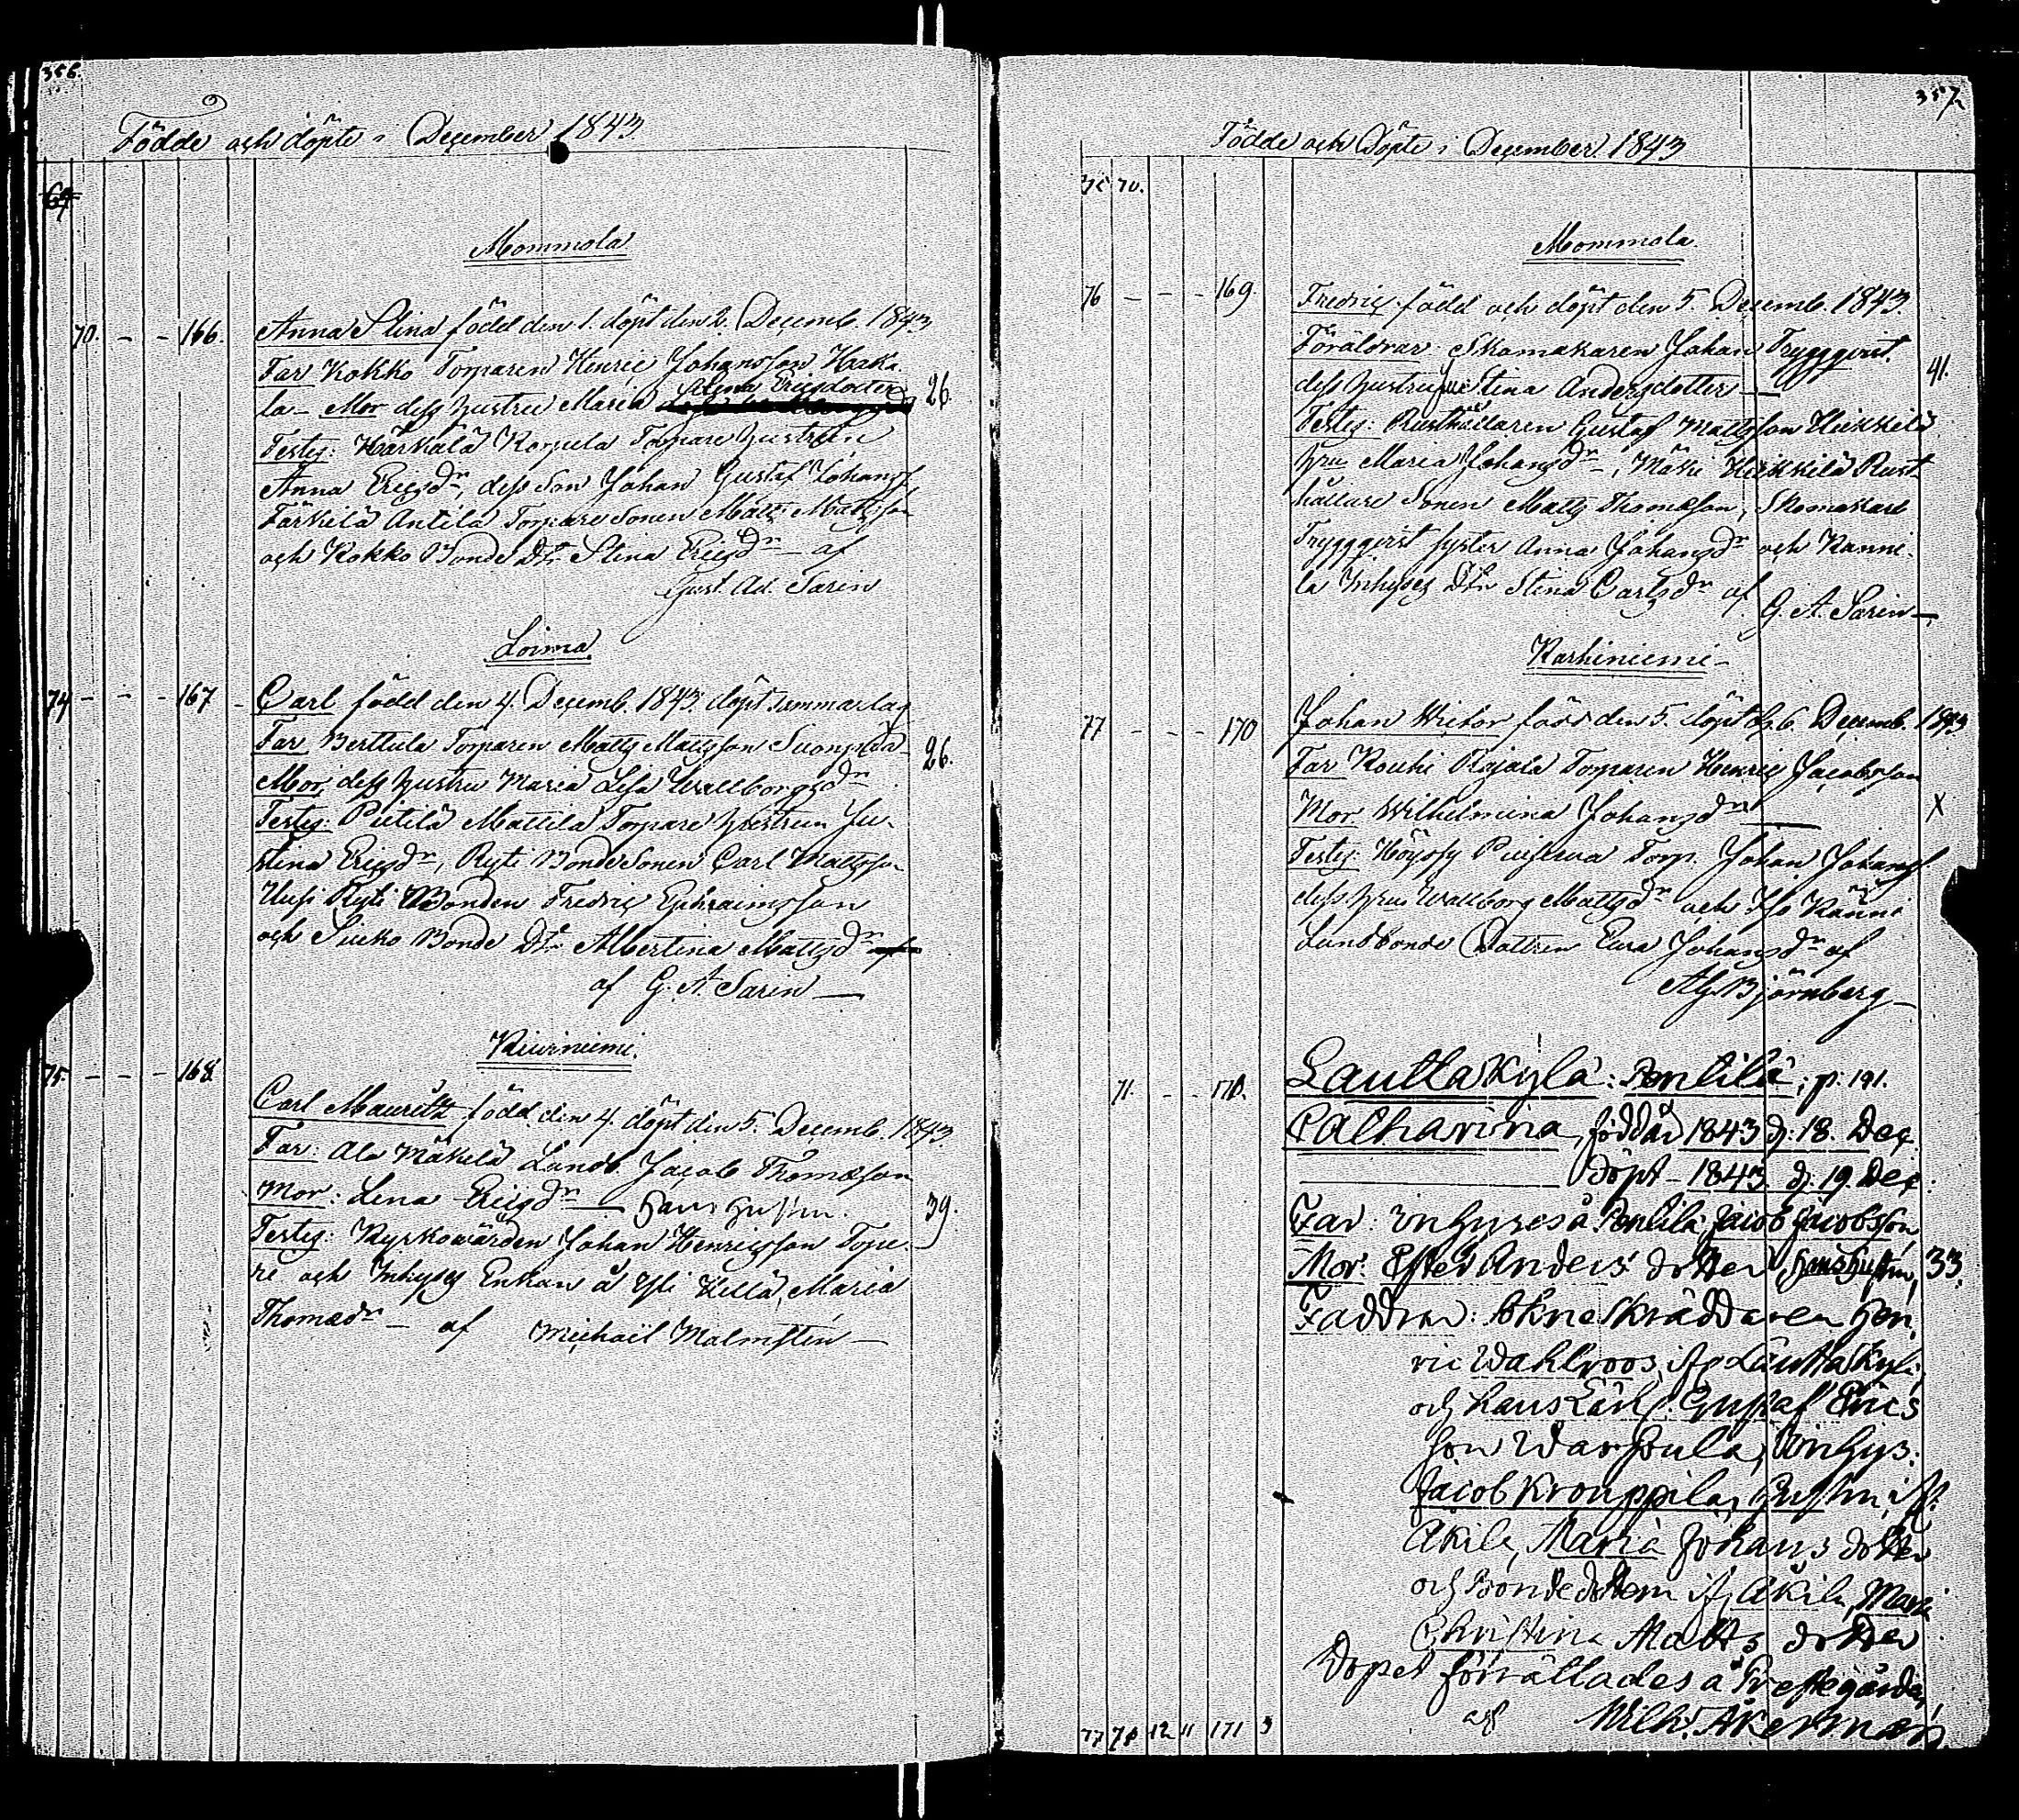 356.
Födde och döpte i December 1843
67
Mommola
70. - - 166. Anna Stina född den 1. döpt den 2. Decemb. 1843
Far Kokko Torparen Henric Johansson Haka-
la - Mor dess hustru Maria Stina Ericsdotter 26.
Testes: Härkälä Korpela Torpare hustrun
Anna Ericsdr, dess Son Johan Gustaf Johanss.
Färkilä Antila Torpare Sonen Matts Mattsson
och Kokko Bonde Dtr Stina Ericsdr - af
Gust. Ad. Sarin
Loima
74 - - - 167 - Carl född den 4. Decemb. 1843. döpt samma dag
Far Berttula Torparen Matts Mattsson Suonpää 26.
Mor dess hustru Maria Lisa Wallborgsdr
Testes: Pietilä Mattila Torpare hustrun Ju-
stina Ericsdr, Ryti BondeSonen Carl Mattsson
Uusi Ryti Bonden Fredric Ephraimsson
och Sucko Bonde Dtr Albertina Mattsdr af
af G. A. Sarin
Kiurniemi.
75. - - - 168 Carl Mauritz född den 4. döpt den 5. Decemb. 1843
Far: Ala Mäkelä Landb. Jacob Thomasson
Mor: Lena Ericsdr hans hustru. 39.
Testes: Kyrkowärden Johan Henricsson Tope-
ri och Inhyses Enkan å Yli Killä, Maria
Thomasdr - af Michaël Malmsten
357.
Födde och Döpte i December 1843
75 70.
Mommola
76 - - - 169. Fredric född och döpt den 5. Decemb. 1843.
Föräldrar Skomakaren Johan Tryggqvist.
dess hustru Stina Andersdotter 41.
Testes: Rusthållaren Gustaf Mattsson Heikkilä
hru Maria Johansdr, Mäki Heikkilä Rust
hållare Sonen Matts Thomasson, Skomakare
Tryggqvist syster Anna Johansdr och Kanni-
la Inhyses Dtr Stina Carlsdr af
G. A. Sarin
Karhiniemi
77 - - - 170 Johan Victor född den 5. döpt d. 6. Decemb. 1843
Far Kouhi Rajala Torparen Henric Jacobsson
Mor Wilhelmina Johansdr X
Testes: Höyssy Torp. Johan Johanss.
dess hru Wallborg Mattsdr och Iso Känni
Landbonde Dottren Eva Johansdr af
Ag. Björnberg
71. - - 171. Lauttakylä: Pentilä; p. 191.
Catharina, född år 1843 d: 18. Dec.
Döpt - 1843. d: 19. Dec.
Far: Inhyses å Pentilä Jacob Jacobsson,
Mor: Ester Anders dotter hans hustru, 33.
Faddrar: Sokneskräddaren Hen,
ric Wahlroos, ifr Lauttakylä,
och hans Lärl. Gustaf Erics
son Warpula, Inhys.
Jacob Krouppilas Hustru, ifr.
Åkile, Maria Johans dotter
och Bondedottern ifr Åkile, Maria
Christina Matts dotter
Dopet förrättades å Prestegården
af Wilh. Åkerman
77 78 12 11 171 3